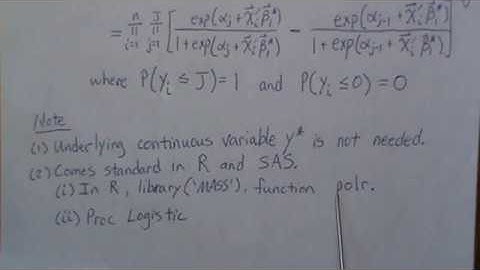 = n∏i=1 J∏j=1 [ exp(αj + X⃗i'β⃗1*) / 1 + exp(αj + X⃗i'β⃗1*) − exp(αj-1 + X⃗i'β⃗1*) / 1 + exp(αj-1 + X⃗i'β⃗1*) ]
where P(Yi ≤ J) = 1 and P(Yi ≤ 0) = 0
Note
(1) Underlying continuous variable y* is not needed.
(2) Comes standard in R and SAS.
(i) In R, library('MASS'), function polr.
(ii) Proc Logistic